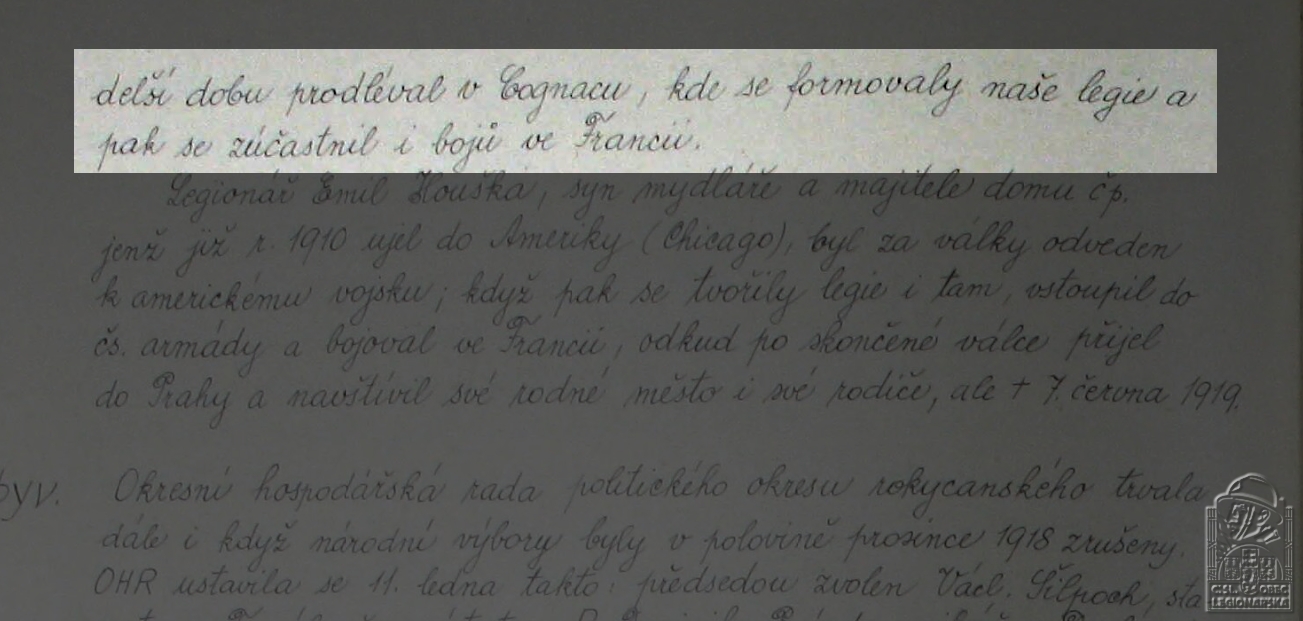 delší dobu prodléval v Cognacu, kde se formovaly naše legie a
pak se zúčastnil i bojů ve Francii.
Legionář Emil Houška, syn mydláře a majitele domu čp.
jenž již r. 1910 ujel do Ameriky (Chicago), byl za války odveden
k americkému vojsku; když pak se tvořily legie i tam, vstoupil do
čs. armády a bojoval ve Francii, odkud po skončené válce přijel
do Prahy a navštívil své rodné město i své rodiče, ale + 7. června 1919.
byv. Okresní hospodářská rada politického okresu rokycanského trvala
dále i když národní výbory byly v polovině prosince 1918 zrušeny.
OHR ustavila se 11. ledna takto: předsedou zvolen Václ. Šilpoch, sta
ČSL. OBEC
LEGIONÁŘSKÁ